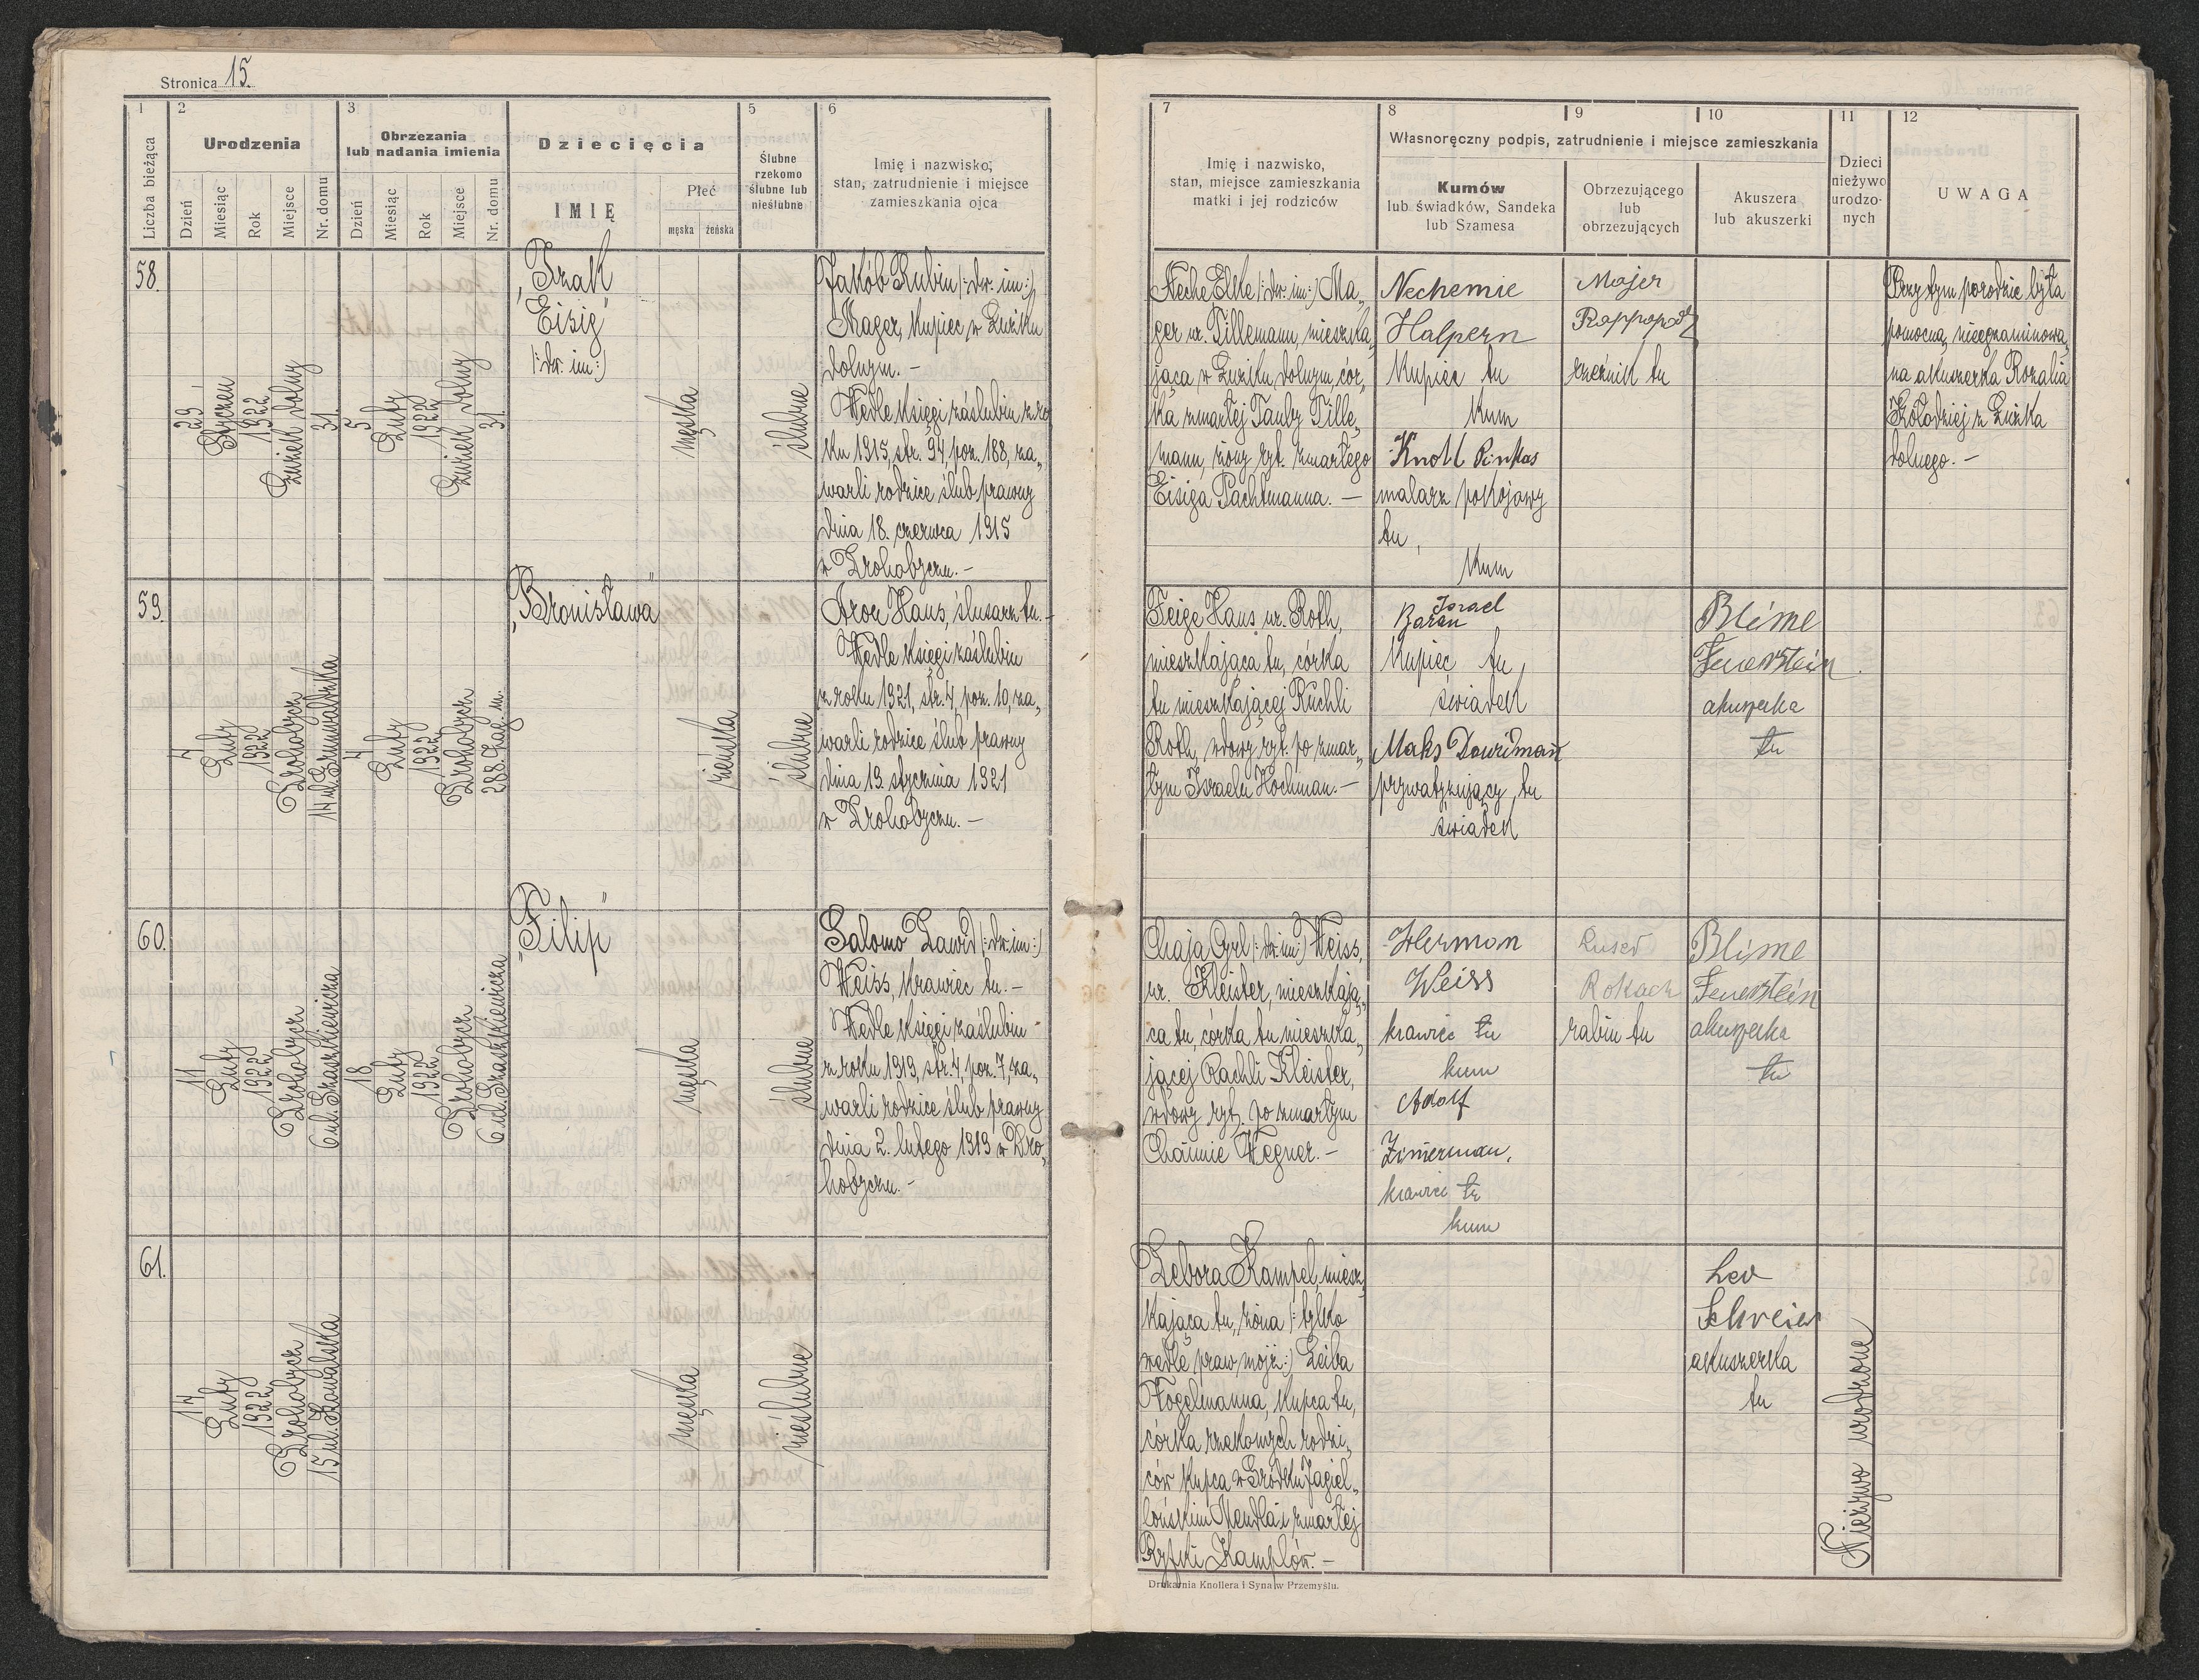 Stronica 15.
1
2
3
5
6
Liczba bieżąca
Urodzenia
Obrzezania
lub nadania imienia
Dziecięcia
Ślubne
rzekomo
ślubne lub
nieślubne
Imię i nazwisko,
stan, zatrudnienie i miejsce
zamieszkania ojca
Dzień
Miesiąc
Rok
Miejsce
Nr. domu
Dzień
Miesiąc
Rok
Miejsce
Nr. domu
IMIĘ
Płeć
męska
żeńska
7
8
9
10
11
12
Imię i nazwisko,
stan, miejsce zamieszkania
matki i jej rodziców
Własnoręczny podpis, zatrudnienie i miejsce zamieszkania
Kumów
lub świadków, Sandeka
lub Szamesa
Obrzezującego
lub
obrzezujących
Akuszera
lub akuszerki
Dzieci
nieżywo
urodzo-
nych
UWAGA
58.
29
Styczeń
1922
Łużek dolny
31.
5
Luty
1922
Łużek dolny
31.
„Izak
Eisig"
(: dw. im :)
męska
ślubne
Jakób Rubin (: dw. im :)
Mager, kupiec w Łużku
dolnym. –
Wedle księgi zaślubin z ro
ku 1915, str. 94, poz. 188, za„
warli rodzice ślub prawny
dnia 18. czerwca 1915
w Drohobyczu. –
Neche Elke (: dw. im :) Ma„
ger ur. Tillemann, mieszka„
jąca w Łużku dolnym, cór„
ka zmarłej Tauby Tille„
mann, żony ryt. zmarłego
Eisiga Pachtmanna. –
Nechemie
Halpern
Kupiec tu
Kum
Knoll Pinkas
malarz pokojowy
tu,
Kum
Majer
Rappaport
rzeźnik tu
Przy tym porodzie była
pomocną nieegzaminowa„
na akuszerka Rozalia
Kołodziej z Łużka
dolnego. –
59.
4
Luty
1922
Drohobycz
14 ul. Grunwaldzka
4
Luty
1922
Drohobycz
288. Zag. m.
„Bronisława"
żeńska
ślubne
Aron Haus, ślusarz tu. –
Wedle księgi zaślubin
z roku 1921, str. 4, poz. 10, za„
warli rodzice ślub prawny
dnia 19. stycznia 1921
w Drohobyczu. –
Feige Haus ur. Roth,
mieszkająca tu, córka
tu mieszkającej Ruchli
Roth, wdowy ryt. po zmar„
łym Izraelu Hochman. –
Israel
Baran
Kupiec tu,
świadek
Maks Dawidman
prywatyzujący, tu
świadek
Blime
Feuerstein
akuszerka
tu
60.
11
Luty
1922
Drohobycz
6 ul. Kraszkiewicza
18
Luty
1922
Drohobycz
6 ul. Kraszkiewicza
„Filip"
męska
ślubne
Salomo Dawid (: dw. im :)
Weiss, krawiec tu. –
Wedle księgi zaślubin
z roku 1919, str. 4, poz. 7, za„
warli rodzice ślub prawny
dnia 2. lutego 1919 w Dro„
hobyczu. –
Chaja Grl (: dw. im :) Weiss,
ur. Kleister, mieszkają„
ca tu, córka tu mieszka„
jącej Rachli Kleister,
wdowy ryt. po zmarłym
Chaimie Wegner. –
Herman
Weiss
krawiec tu
kum
Adolf
Zimerman,
krawiec tu
kum
Rokach
rabin tu
Blime
Feuerstein
akuszerka
tu
61.
Luty
1922
Drohobycz
15 ul. Kowalska
męska
nieślubne
Debora Kampel, miesz„
kająca tu, żona (: tylko
wedle praw mojż :) Leiba
Vogelmanna, kupca tu,
córka rzekomych rodzi„
ców kupca w Gródku Jagiel„
lońskim Mendla i zmarłej
Ryfki Kamplów. –
Lea
Schreier
akuszerka
tu
Nieżywo urodzone
Drukarnia Knollera i Syna w Przemyślu.